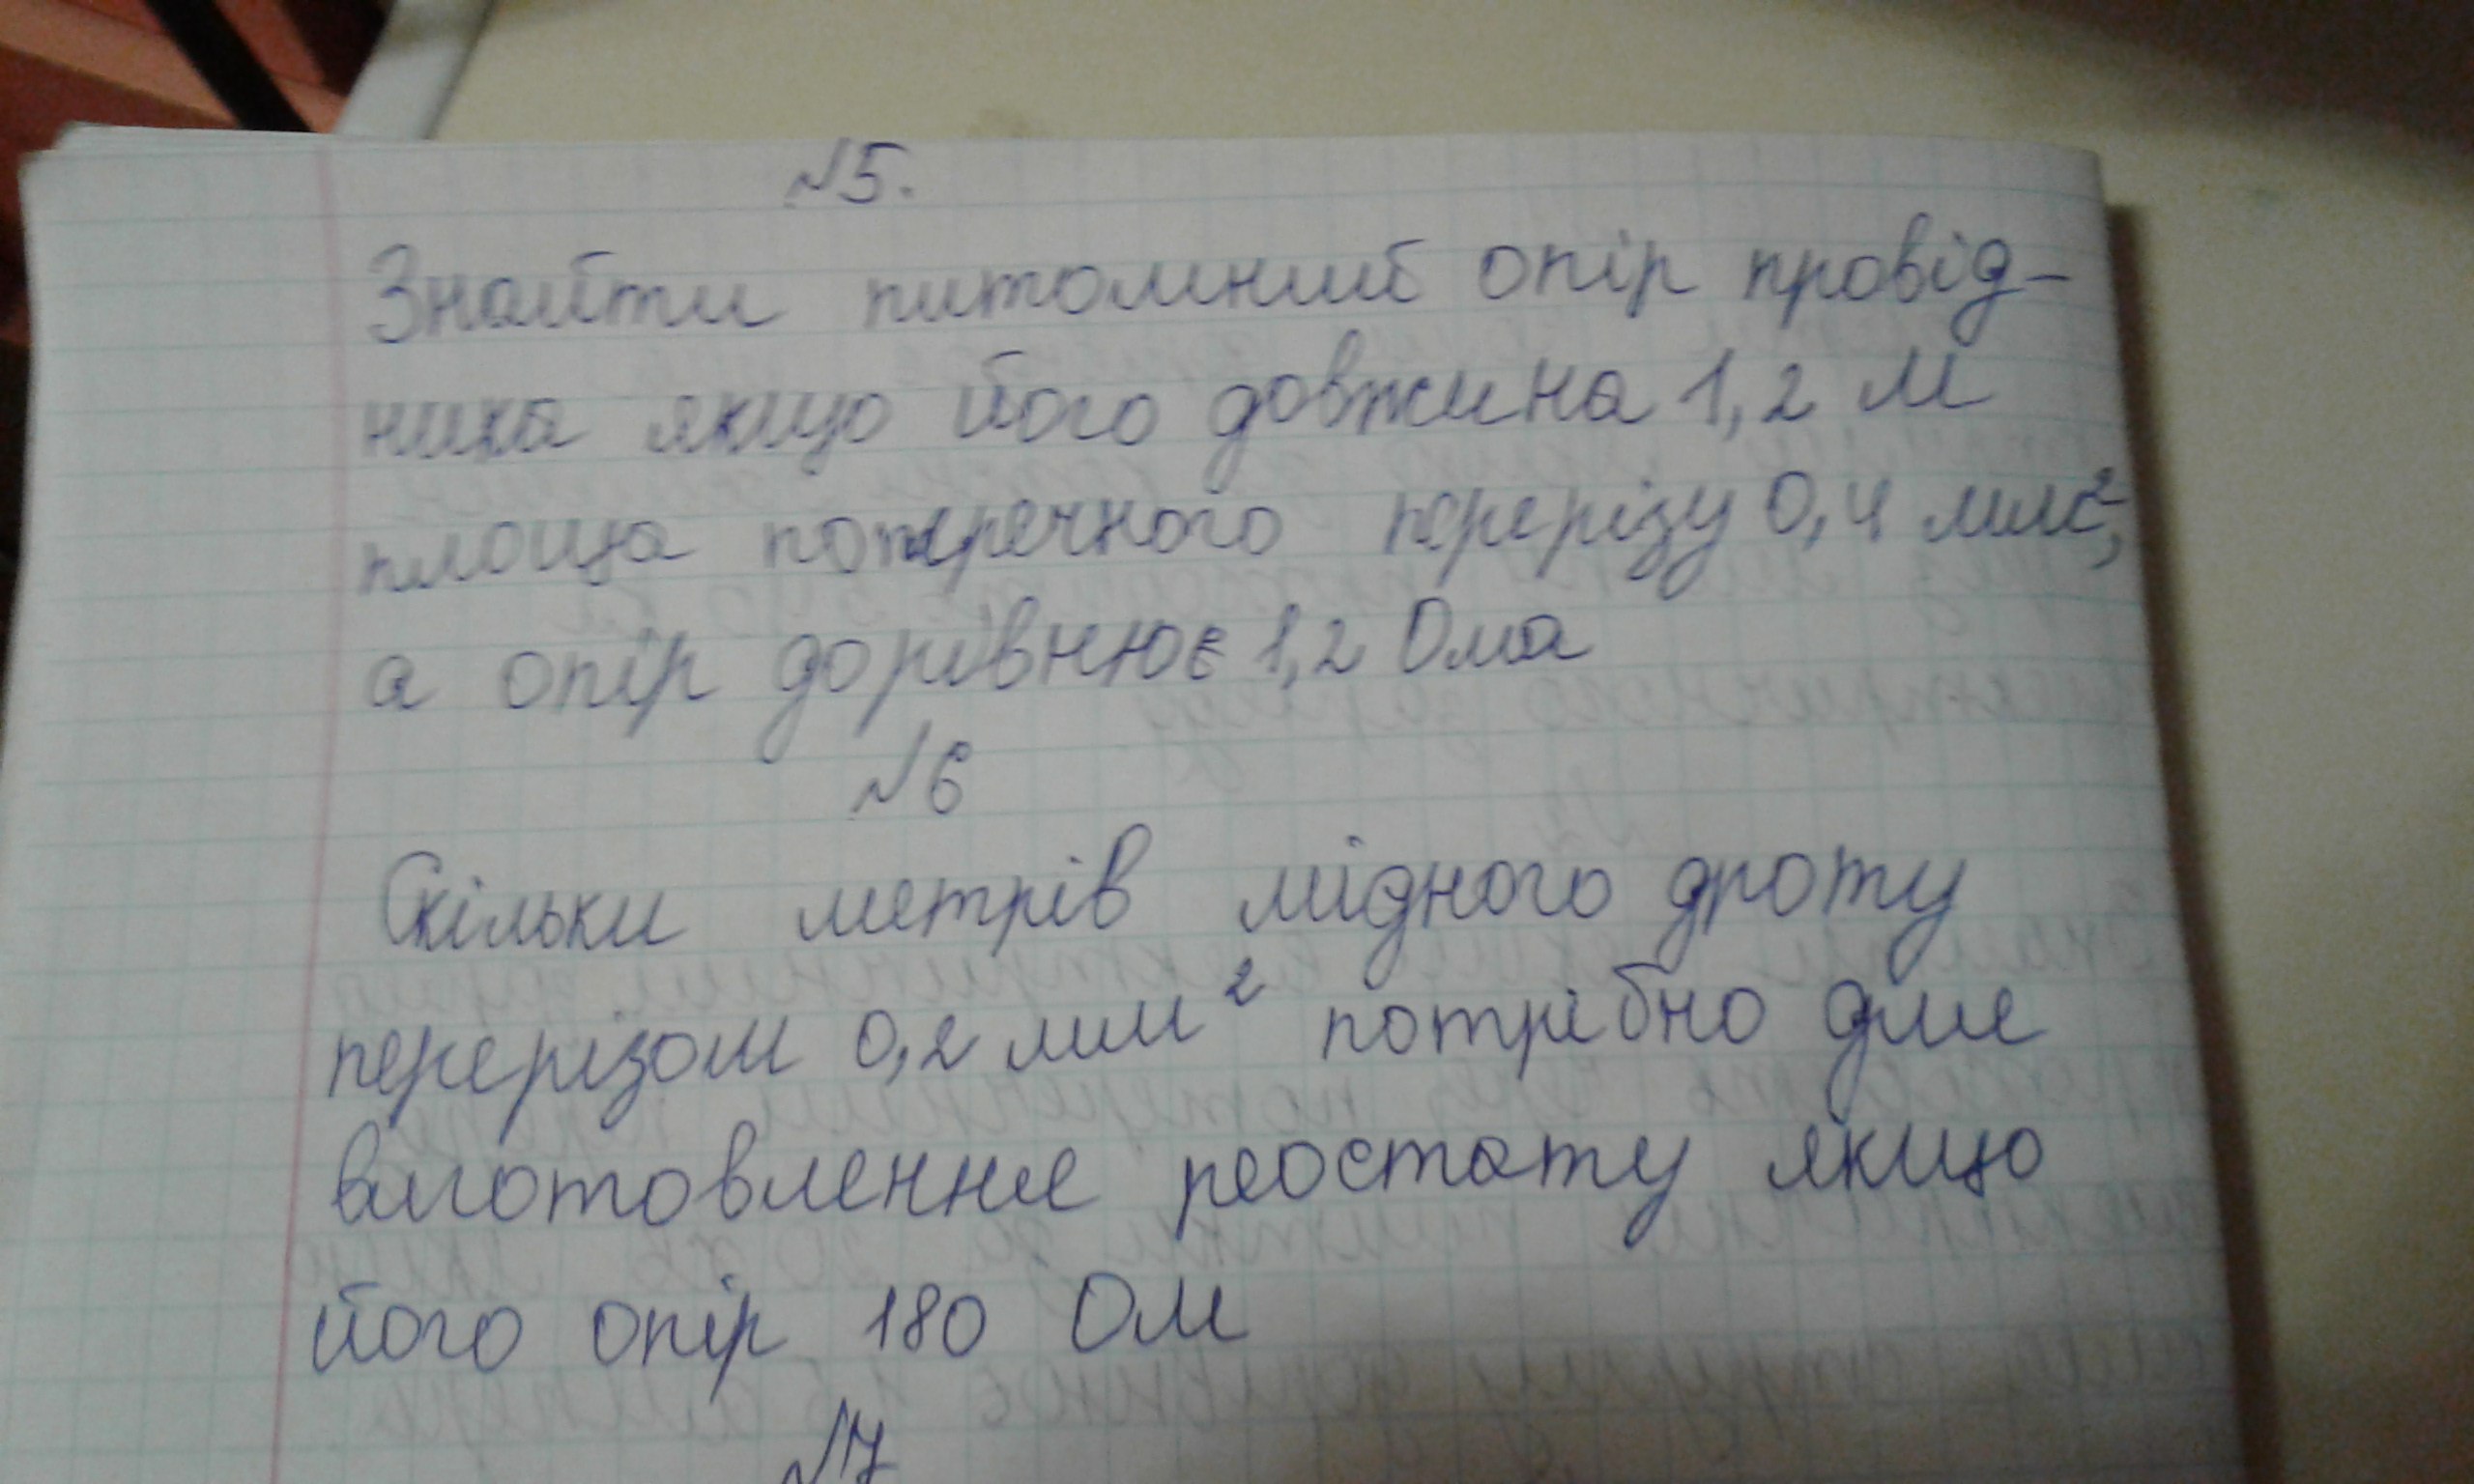 №5.
Знайти питомний опір провід-
ника якщо його довжина 1,2 м
площа поперечного перерізу 0,4 мм²,
а опір дорівнює 1,2 Ома
№6
Скільки метрів мідного дроту
перерізом 0,2 мм² потрібно для
виготовлення реостату якщо
його опір 180 Ом
№7